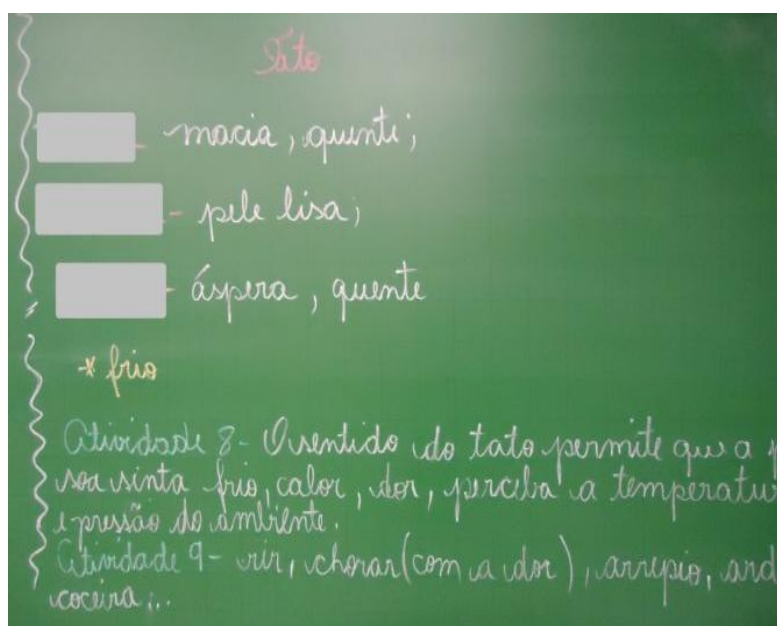 Tato
- macia, quente;
- pele lisa;
- áspera, quente
* frio
Atividade 8- O sentido do tato permite que a p
soa sinta frio, calor, dor, perceba a temperatu
e pressão do ambiente.
Atividade 9- rir, chorar (com a dor), arrepio, ard
coceira...